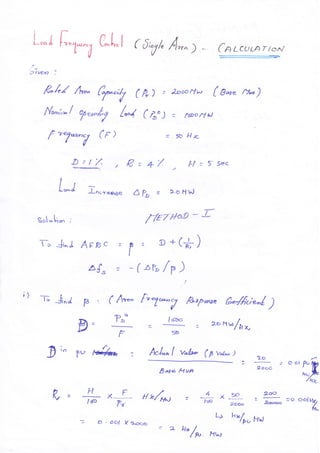 Load Frequency Control ( Single Area ) - CALCULATION
Given :
Rated Area Capacity ( Pr ) = 2000 MW ( Base MVA )
Nominal operating Load ( PD° ) = 1000 MW
Frequency ( F ) = 50 Hz
D = 1 % , R = 4 % , H = 5 sec
Load Increase ΔPD = 20 MW
Solution : METHOD - I
To find AFRC = β = D + ( 1/R )
Δfs = - ( ΔPD / β )
i) To find β : ( Area Frequency Response Coefficient )
D = PD° / F = 1000 / 50 = 20 MW/Hz
D in pu = Actual Value ( Value ) / Base MVA = 20 / 2000 = 0.01 pu
R = / 100 × F / Pr Hz/MW = 4 / 100 × 50 / 2000 = 200 / = 0.001 Hz/
Hz/pu MW
= 0.001 × 2000 = 2 Hz / pu. MW